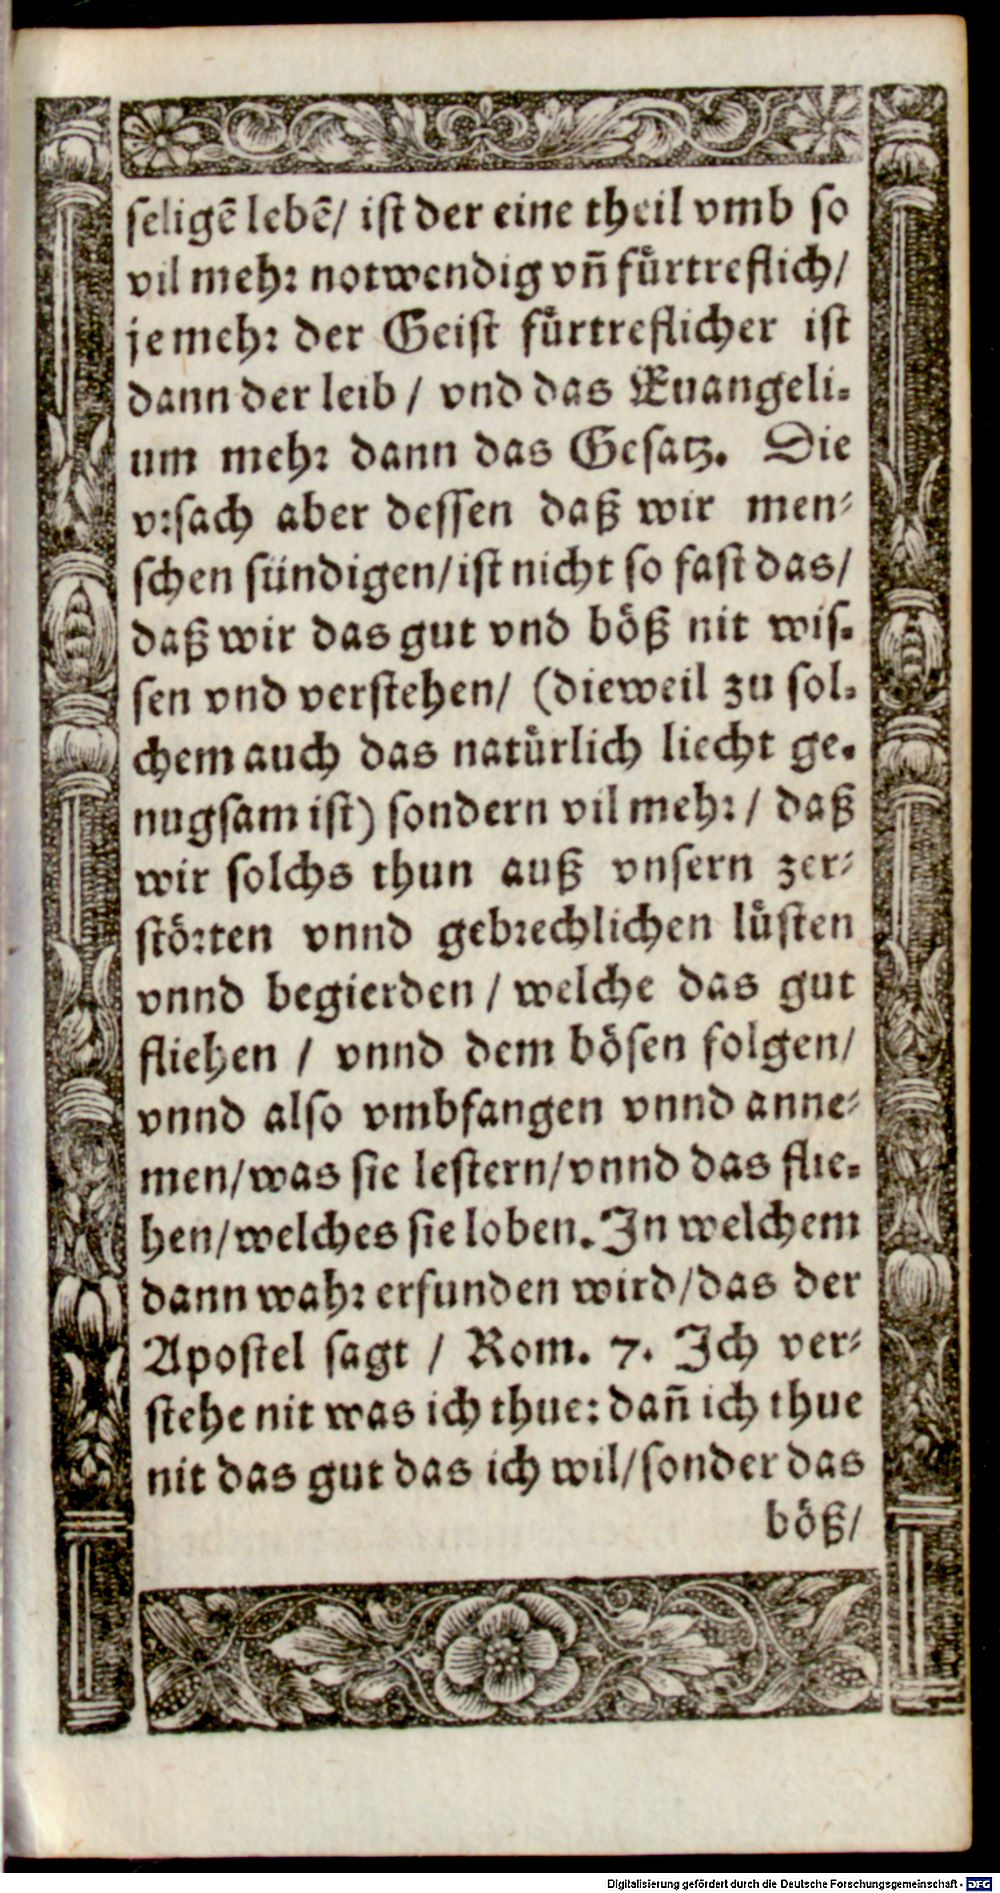 seligē lebē/ ist der eine theil vmb so
vil mehr notwendig vñ fürtreflich/
je mehr der Geist fürtreflicher ist
dann der leib / vnd das Euangeli-
um mehr dann das Gesatz. Die
vrsach aber dessen daß wir men-
schen sündigen/ ist nicht so fast das/
daß wir das gut vnd böß nit wis-
sen vnd verstehen/ (dieweil zu sol-
chem auch das natürlich liecht ge-
nugsam ist) sondern vil mehr / daß
wir solchs thun auß vnsern zer-
störten vnnd gebrechlichen lüsten
vnnd begierden / welche das gut
fliehen / vnnd dem bösen folgen/
vnnd also vmbfangen vnnd anne-
men/ was sie lestern/ vnnd das flie-
hen/ welches sie loben. In welchem
dann wahr erfunden wird/ das der
Apostel sagt / Rom. 7. Ich ver-
stehe nit was ich thue: dañ ich thue
nit das gut das ich wil/ sonder das
böß/
Digitalisierung gefördert durch die Deutsche Forschungsgemeinschaft - DFG